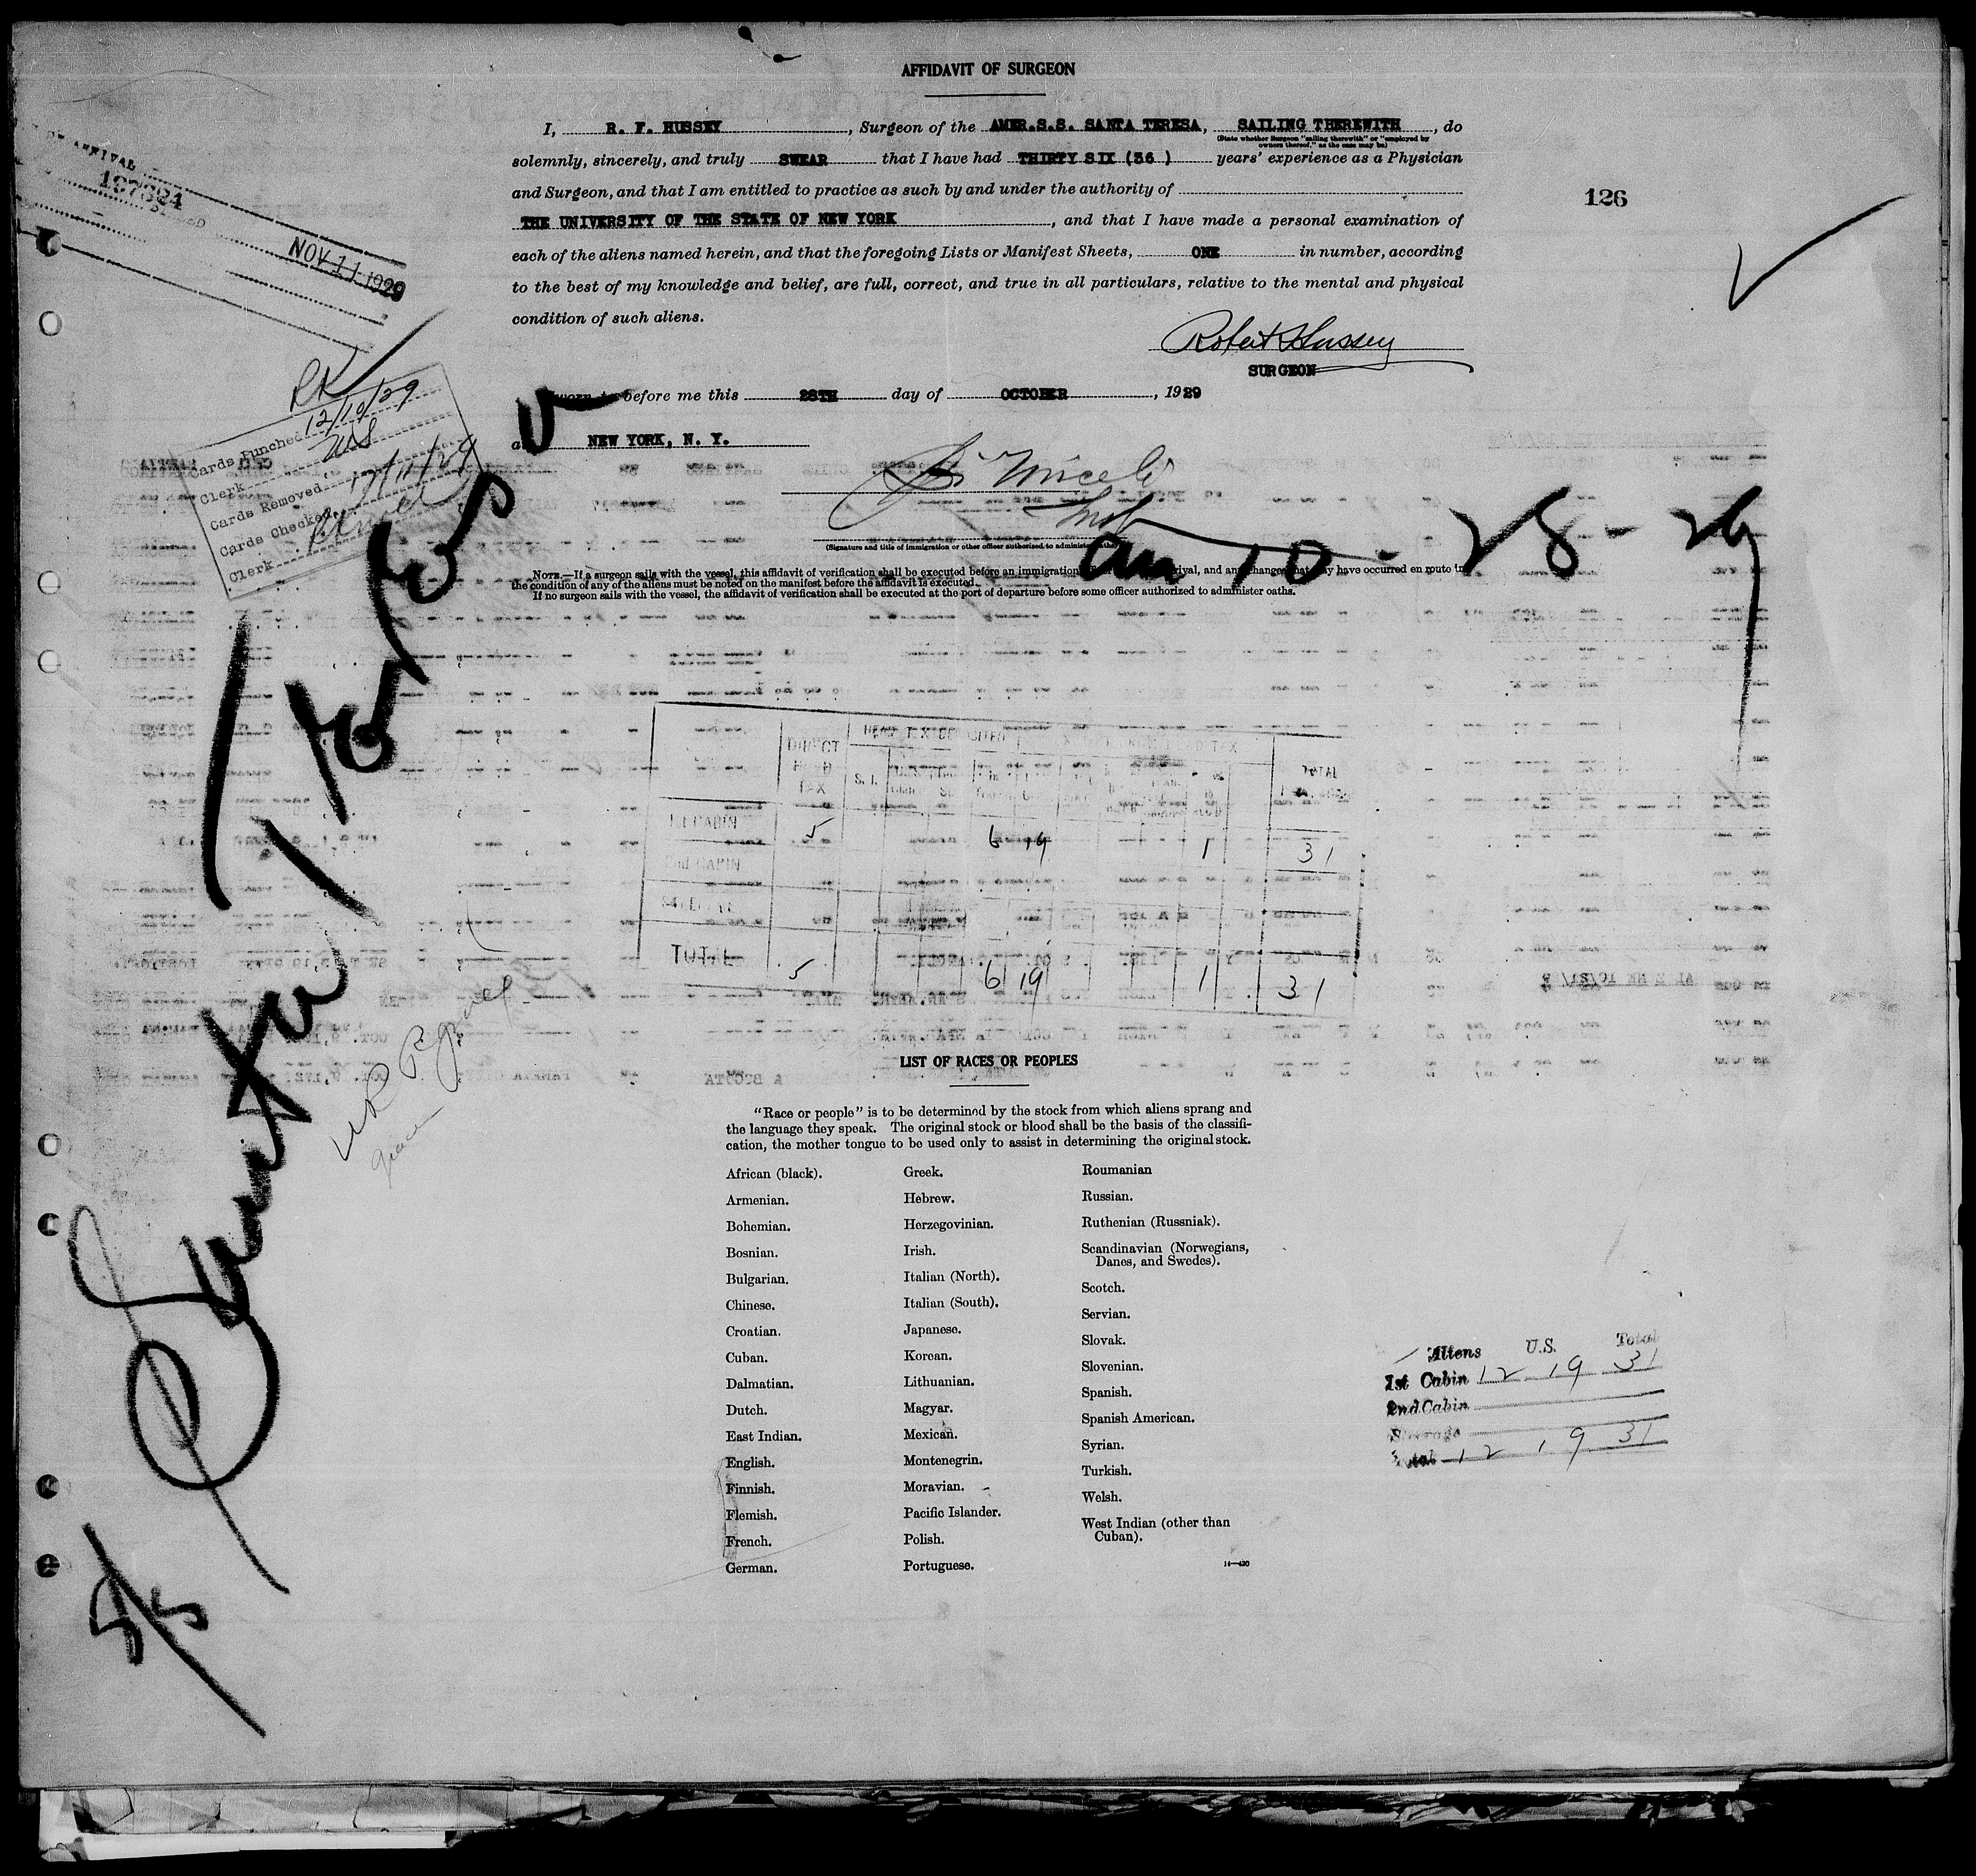 AFFIDAVIT OF SURGEON
I, R. F. HUSSEY, Surgeon of the AMER.S.S. SANTA TERESA, SAILING THEREWITH, do
(State whether Surgeon "sailing therewith" or "employed by
owners thereof," as the case may be)
solemnly, sincerely, and truly SWEAR that I have had THIRTY SIX (36 ) years' experience as a Physician
and Surgeon, and that I am entitled to practice as such by and under the authority of
THE UNIVERSITY OF THE STATE OF NEW YORK, and that I have made a personal examination of
each of the aliens named herein, and that the foregoing Lists or Manifest Sheets, ONE in number, according
to the best of my knowledge and belief, are full, correct, and true in all particulars, relative to the mental and physical
condition of such aliens.
Robert Hussey
SURGEON
before me this 28TH day of OCTOBER, 1929
NEW YORK, N. Y.
(Signature and title of immigration or other officer authorized to administer
NOTE.—If a surgeon sails with the vessel, this affidavit of verification shall be executed before an immigration rival, and any changes that may have occurred en route in
the condition of any of the aliens must be noted on the manifest before the affidavit is executed.
If no surgeon sails with the vessel, the affidavit of verification shall be executed at the port of departure before some officer authorized to administer oaths.
126
ARRIVAL
NOV 11 1929
RK
Cards Punched 12/10/29
Clerk
Cards Removed 12/11/29
Cards Checked
Clerk
am 10 - 28 - 29
S/S Santa Teresa
DIRECT HEAD TAX
S. I.
TOTAL
1st CABIN 5 6 19 1 31
2nd CABIN
TOTAL 5 6 19 1 31
LIST OF RACES OR PEOPLES
"Race or people" is to be determined by the stock from which aliens sprang and
the language they speak. The original stock or blood shall be the basis of the classifi-
cation, the mother tongue to be used only to assist in determining the original stock.
African (black).
Armenian.
Bohemian.
Bosnian.
Bulgarian.
Chinese.
Croatian.
Cuban.
Dalmatian.
Dutch.
East Indian.
English.
Finnish.
Flemish.
French.
German.
Greek.
Hebrew.
Herzegovinian.
Irish.
Italian (North).
Italian (South).
Japanese.
Korean.
Lithuanian.
Magyar.
Mexican.
Montenegrin.
Moravian.
Pacific Islander.
Polish.
Portuguese.
Roumanian
Russian.
Ruthenian (Russniak).
Scandinavian (Norwegians,
Danes, and Swedes).
Scotch.
Servian.
Slovak.
Slovenian.
Spanish.
Spanish American.
Syrian.
Turkish.
Welsh.
West Indian (other than
Cuban).
14—430
Aliens U.S. Total
1st Cabin 12 19 31
2nd Cabin
Steerage
Total 12 19 31